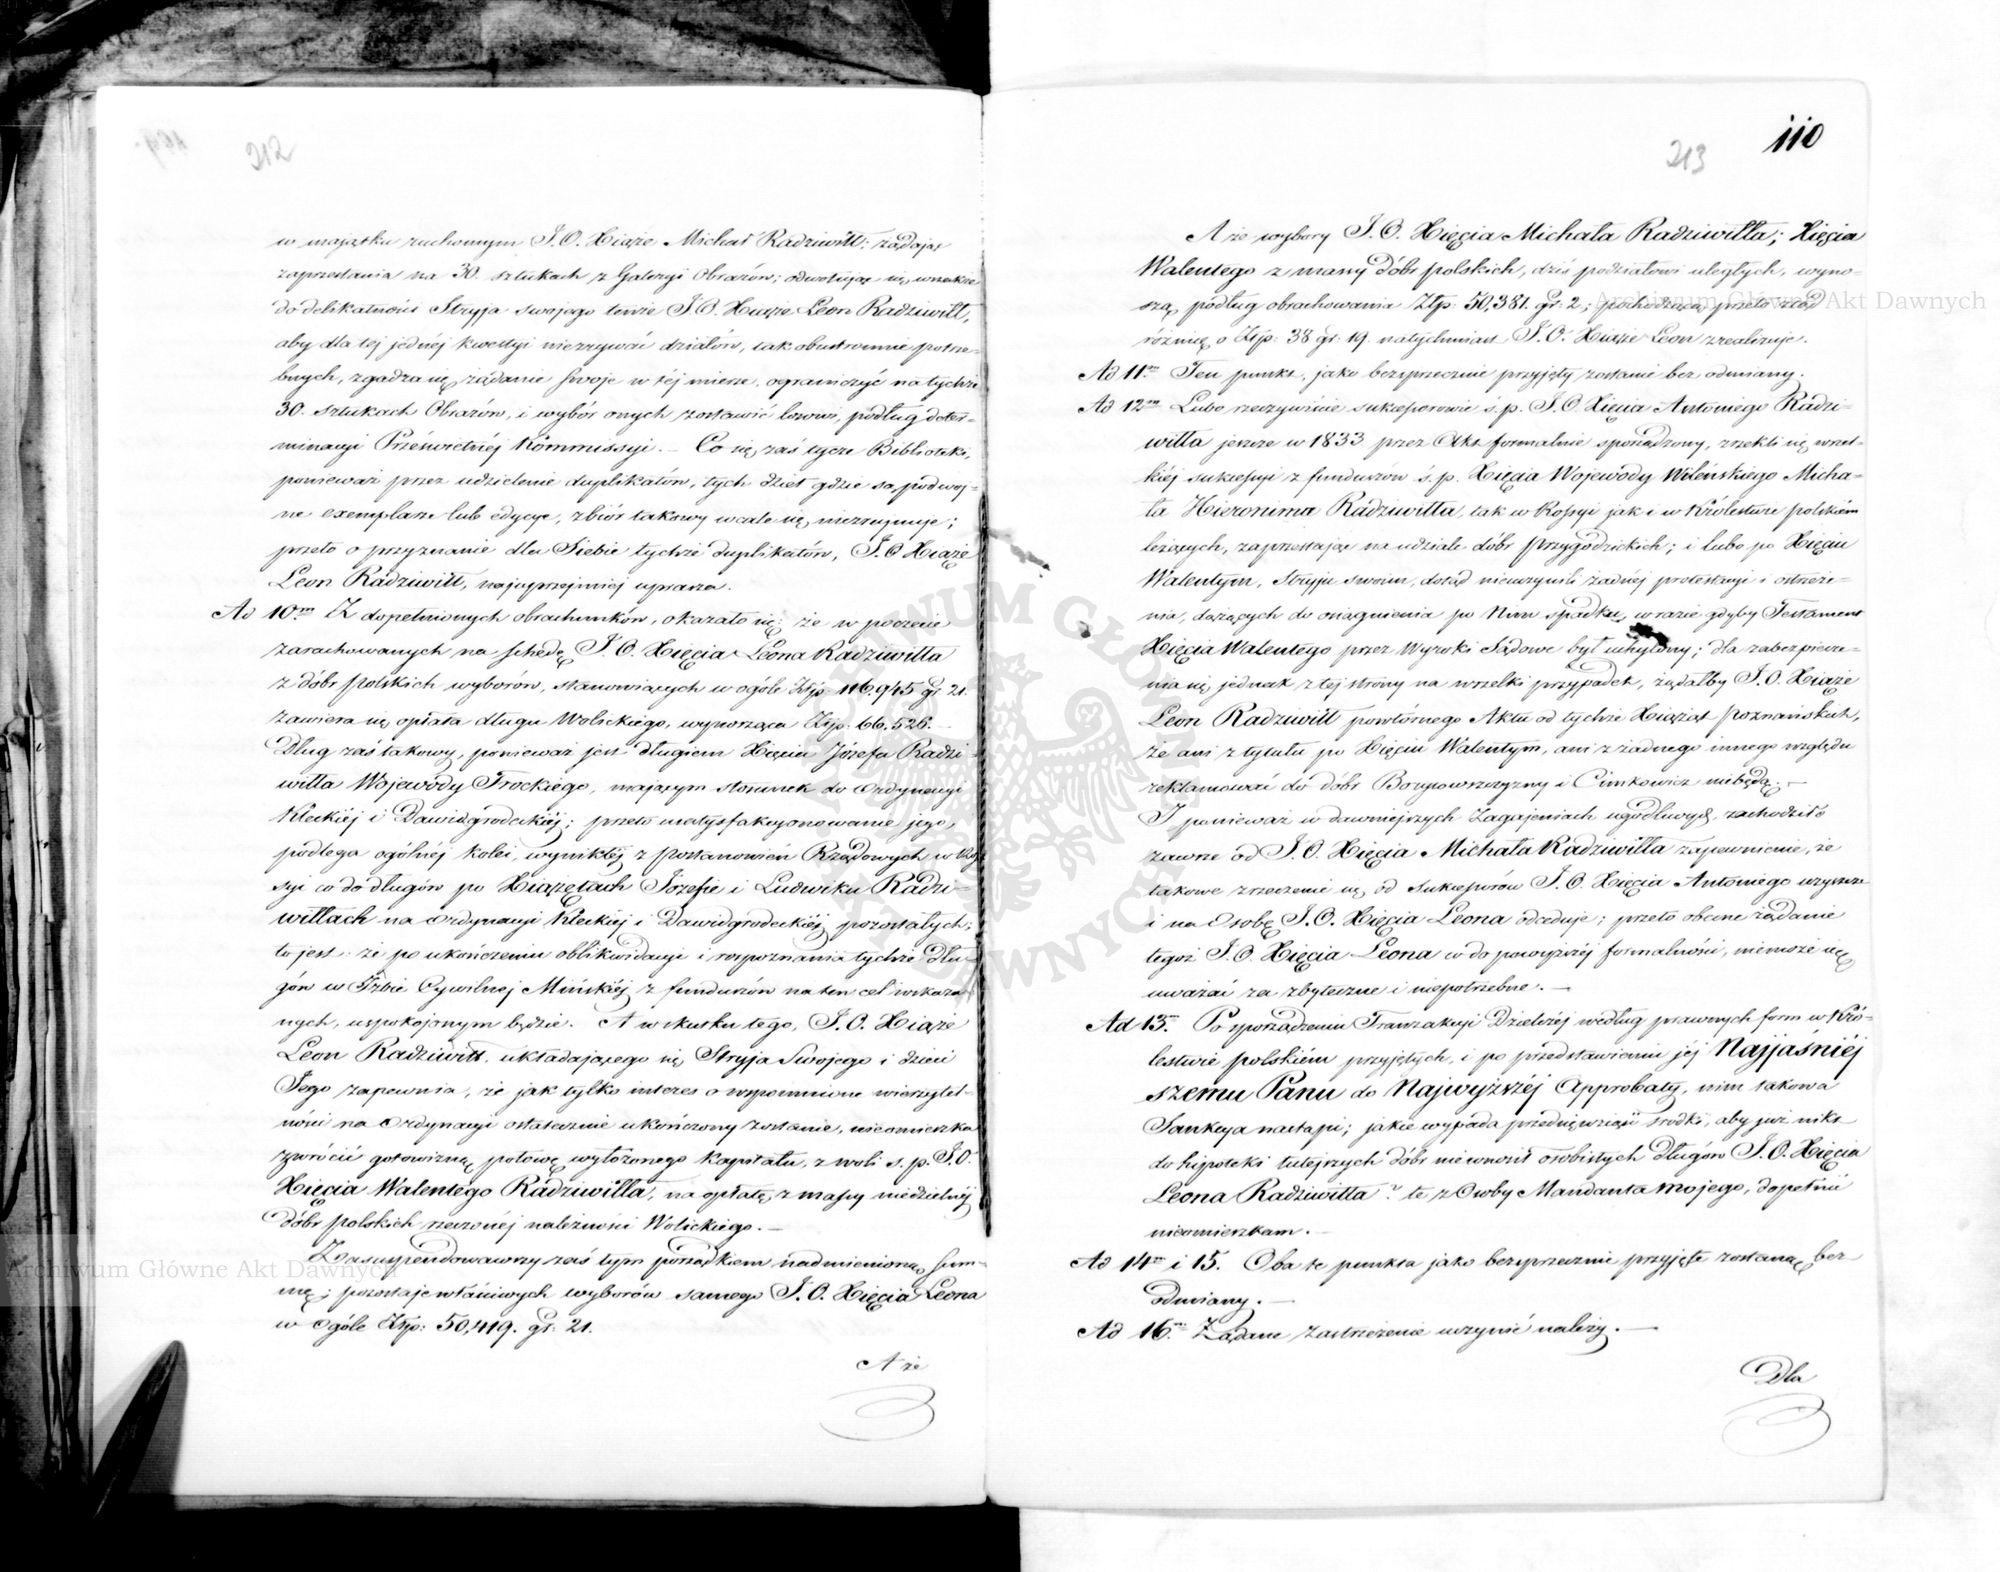 212
w majątku ruchomym J.O. Xiąże Michał Radziwiłł: żądając
zaprzestania na 30. sztukach z Galeryi Obrazów; odwołując się wszakże
do delikatności Stryja swojego tenże J.O. Xiąże Leon Radziwiłł,
aby dla tej jednéj kwestyi niezrywać działów, tak obustronnie potrze-
bnych, zgadza się żądanie swoje w téj mierze, ograniczyć na tychże
30. sztukach Obrazów, i wybór onych zostawić losowi, podług deter-
minacyi Prześwietnéj Kommissyi. — Co się zaś tycze Biblioteki,
ponieważ przez udzielenie duplikatów, tych dzieł gdzie są podwój-
ne exemplarze lub edycye, zbiór takowy wcale się niezrujnuje;
przeto o przyznanie dla Siebie tychże duplikatów, J.O Xiąże
Leon Radziwiłł, najuprzejmiej uprasza.
Ad 10m Z dopełnionych obrachunków, okazało się: że w poczecie
zarachowanych na schedę J.O. Xięcia Leona Radziwiłła
z dóbr polskich wyborów, stanowiących w ogóle Złp. 116,945 gr. 21.
zawiera się opłata długu Wolickiego, wynosząca Złp: 66,526. —
Dług zaś takowy, ponieważ jest długiem Xięcia Józefa Radzi-
wiłła Wojewody Trockiego, mającym stosunek do Ordynacyi
Kleckiéj i Dawidgródeckiéj; przeto usatysfakcyonowanie jego,
podlega ogólnéj kolei, wynikłéj z postanowień Rządowych w Ros-
syi co do długów po Xiążętach Józefie i Ludwiku Radzi-
wiłłach na Ordynacyi Kleckiéj i Dawidgródeckiéj pozostałych;
to jest: że po ukończeniu oblikwidacyi i rozpoznania tychże dłu-
gów w Izbie Cywilnej Mińskiéj z funduszów na ten cel wskaza-
nych, uspokojonym będzie. A w skutku tego, J.O. Xiąże
Leon Radziwiłł, układającego się Stryja Swojego i dzieci
Jego zapewnia, że jak tylko interes o wspomnione wierzytel-
ności na Ordynacyi ostatecznie ukończony zostanie, nieomieszka
zwrócić gotowizną połowę wyłożonego kapitału, z woli ś.p. J.O.
Xięcia Walentego Radziwiłła, na opłatę z massy niedzielnéj
dóbr polskich rzeczonéj należności Wolickiego. —
Zasuspendowawszy zaś tym porządkiem nadmienioną sum-
mę; pozostaje właściwych wyborów samego J.O. Xięcia Leona
w ogóle Złp: 50,419. gr. 21.
A że
213
110
A że wybory J.O. Xięcia Michała Radziwiłła; Xięcia
Walentego z massy dóbr polskich, dziś podziałowi uległych, wyno-
szą, podług obrachowania Złp. 50,381. gr: 2; pochodzącą przeto ztąd
różnicę o Złp: 38 gr: 19. natychmiast J.O. Xiąże Leon zrealizuje.
Ad 11m Ten punkt, jako bezsprzecznie przyjęty zostanie bez odmiany.
Ad 12m Lubo rzeczywiście sukcessorowie ś.p. J.O. Xięcia Antoniego Radzi-
wiłła jeszcze w 1833 przez Akt formalnie sporządzony, zrzekli się wszel-
kiéj sukcessyi z funduszów ś.p. Xięcia Wojewody Wileńskiego Micha-
ła Hieronima Radziwiłła, tak w Rossyi jak i w Królestwie polskiém
leżących, zaprzestając na udziale dóbr Przygodzickich; i lubo po Xięciu
Walentym, Stryju swoim, dotąd nieuczynili żadnéj protestacyi i ostrzeże-
nia, dążących do osiągnienia po Nim spadku, w razie gdyby Testament
Xięcia Walentego przez Wyroki Sądowe był uchylony; dla zabezpiecze-
nia się jednak z tej strony na wszelki przypadek, żądałby J.O. Xiąże
Leon Radziwiłł powtórnego Aktu od tychże Xiążąt Poznańskich,
że ani z tytułu po Xięciu Walentym, ani z żadnego innego względu
reklamować do dóbr i Cimkowicz niebędą. —
I ponieważ w dawniejszych Zagajeniach ugodliwych, zachodziło
zawsze od J.O. Xięcia Michała Radziwiłła zapewnienie, że
takowe zrzeczenie się od sukcessorów J.O. Xięcia Antoniego uzyszcze
i na Osobę J.O. Xięcia Leona odceduje; przeto obecne żądanie
tegoż J.O. Xięcia Leona co do powyższéj formalności, niemoże się
uważać za zbyteczne i niepotrzebne. —
Ad 13m Po sporządzeniu Tranzakcyi Dzielczéj według prawnych form w Kró-
lestwie polskiém przyjętych, i po przedstawieniu jéj Najjaśniéj
szemu Panu do Najwyższéj Approbaty, nim takowa
Sankcya nastąpi; jakie wypada przedsięwziąść środki, aby już nikt
do hipoteki tutejszych dóbr niewnosił osobistych długów J.O. Xięcia
Leona Radziwiłła? te z Osoby Mandanta mojego, dopełnić
nieomieszkam. —
Ad 14m i 15. Oba te punkta jako bezsprzecznie przyjęte zostaną, bez
odmiany. —
Ad 16m Żądane zastrzeżenie uczynić należy. —
Dla
Archiwum Główne Akt Dawnych
Archiwum Główne Akt Dawnych
ARCHIWUM GŁÓWNE AKT DAWNYCH